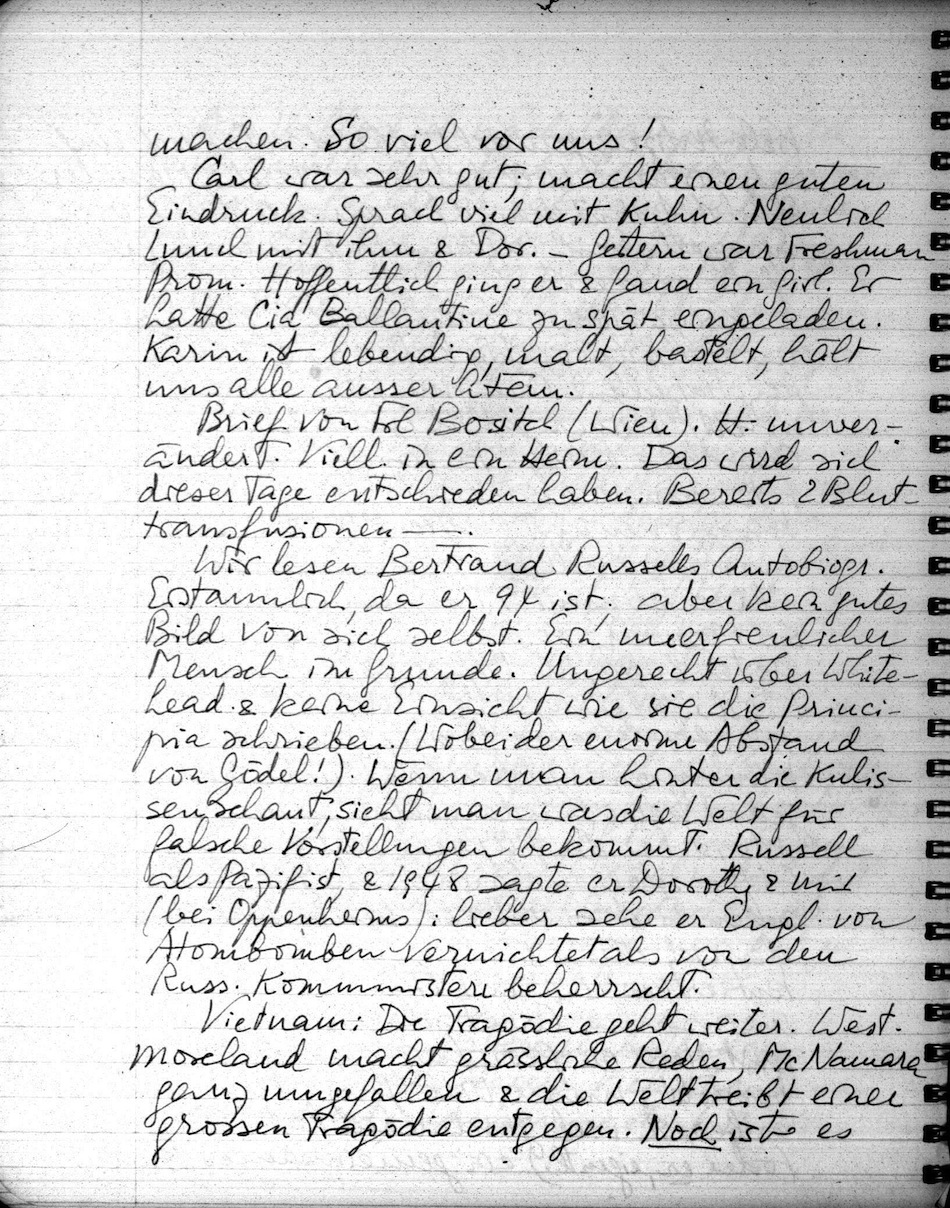 machen. So viel vor uns!
Carl war sehr gut; macht einen guten
Eindruck. Sprach viel mit Kuhn. Neulich
Lunch mit ihm & Dor. – Gestern war Freshman
Prom. Hoffentlich ging er & fand ein Girl. Er
hatte Cia Ballantine zu spät eingeladen.
Karin ist lebendig, malt, bastelt, hält
uns alle ausser Atem.
Brief von Frl Bositch (Wien). H. unver-
ändert. Viell. in ein Heim. Das wird sich
dieser Tage entschieden haben. Bereits 2 Blut-
transfusionen —.
Wir lesen Bertrand Russells Autobiogr.
Erstaunlich, da er 94 ist; aber kein gutes
Bild von sich selbst. Ein unerfreulicher
Mensch im Grunde. Ungerecht über White-
head & keine Einsicht wie sie die Princi-
pia schrieben. (Wobei der enorme Abstand
von Gödel!). Wenn man hinter die Kulis-
sen schaut, sieht man was die Welt für
falsche Vorstellungen bekommt. Russell
als Pazifist, & 1948 sagte er Dorothy & mir
(bei Oppenheims): lieber sehe er Engl. von
Atombomben vernichtet als von den
Russ. Kommunisten beherrscht.
Vietnam: Die Tragödie geht weiter. West-
moreland macht grässliche Reden, McNamara
ganz umgefallen & die Welt treibt einer
grossen Tragödie entgegen. Noch ist es